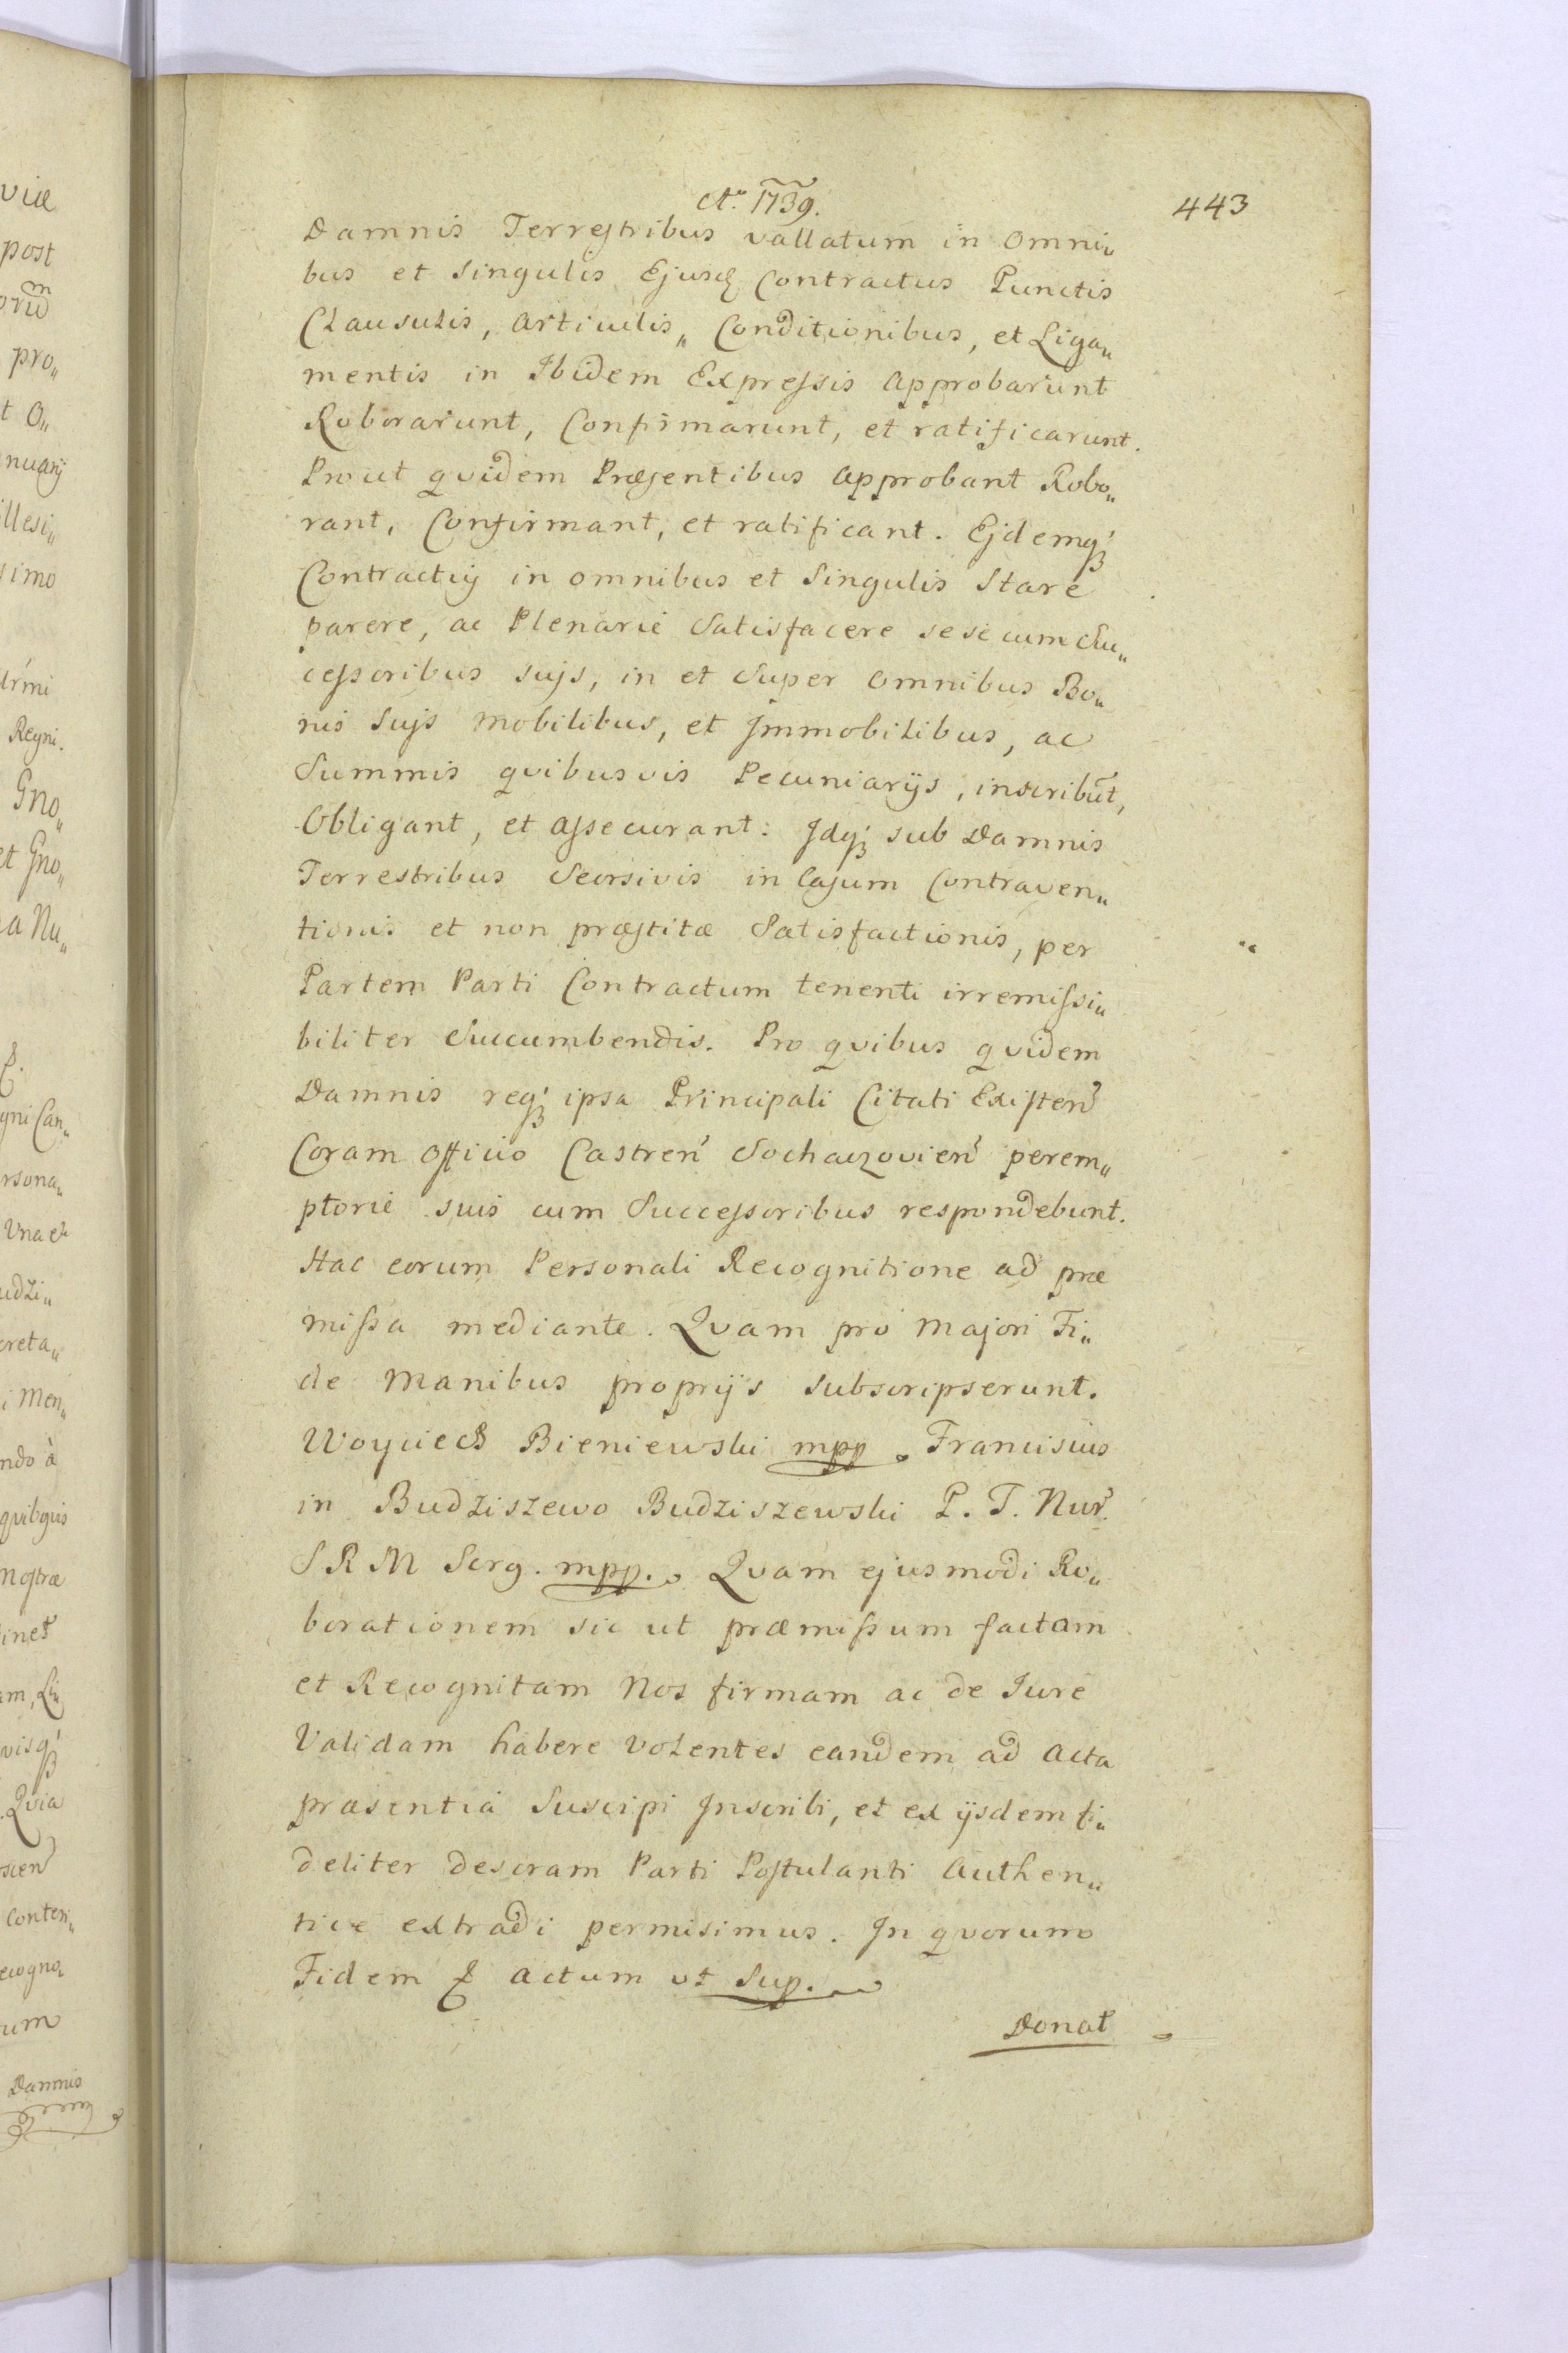 Aº 1739.
443
Damnis Terrestribus vallatum in omni„
bus et Singulis Ejusd Contractus Punctis
Clausulis, Articulis„ Conditionibus, et Liga„
mentis in Ibidem Expressis Approbarunt
Roborarunt, Confirmarunt, et ratificarunt.
Prout quidem Præsentibus Approbant Robo„
rant, Confirmant, et ratificant. Ejdemq;
Contractuj in omnibus et Singulis Stare
parere, ac Plenarie Satisfacere sese cum Su„
cessoribus sujs, in et Super omnibus Bo„
nis Sujs mobilibus, et Jmmobilibus, ac
Summis qvibusvis Pecuniarijs, inscribūt,
Obligant, et Assecurant: Jdq; sub Damnis
Terrestribus Seorsivis in Casum Contraven„
tionis et non præstitæ Satisfactionis, per
Partem Parti Contractum tenenti irremissi„
biliter Succumbendis. Pro qvibus qvidem
Damnis req; ipsa Principali Citati Existen
Coram Officio Castren Sochaczovien perem„
ptorie suis cum Successoribus respondebunt.
Hac eorum Personali Recognitione ad præ
missa mediante. Qvam pro majori Fi„
de Manibus proprijs subscripserunt.
Woyciech Bieniewski mpp Franciscus
in Budziszewo Budziszewski P. T. Nur.
S R M Scrg. mpp. Qvam ejusmodi Ro„
borationem sic ut præmissum factam
et Recognitam Nos firmam ac de Jure
Validam habere Volentes eandem ad Acta
præsentia Suscipi Jnscribi, et ex ijsdem fi„
deliter descram Parti Postulanti Authen„
tice extradi permisimus. Jn qvorum
Fidem & Actum ut Sup.
Donat
viæ
post
pro„
t O„
nuarij
illesi„
simo
Regni.
Gno„
et Gno„
a Nu„
gni Can„
rsona„
Una et
udzi„
creta„
i Men„
ndo à
nostræ
visq;
Qvia
conten„
ecogno„
um
Damnis